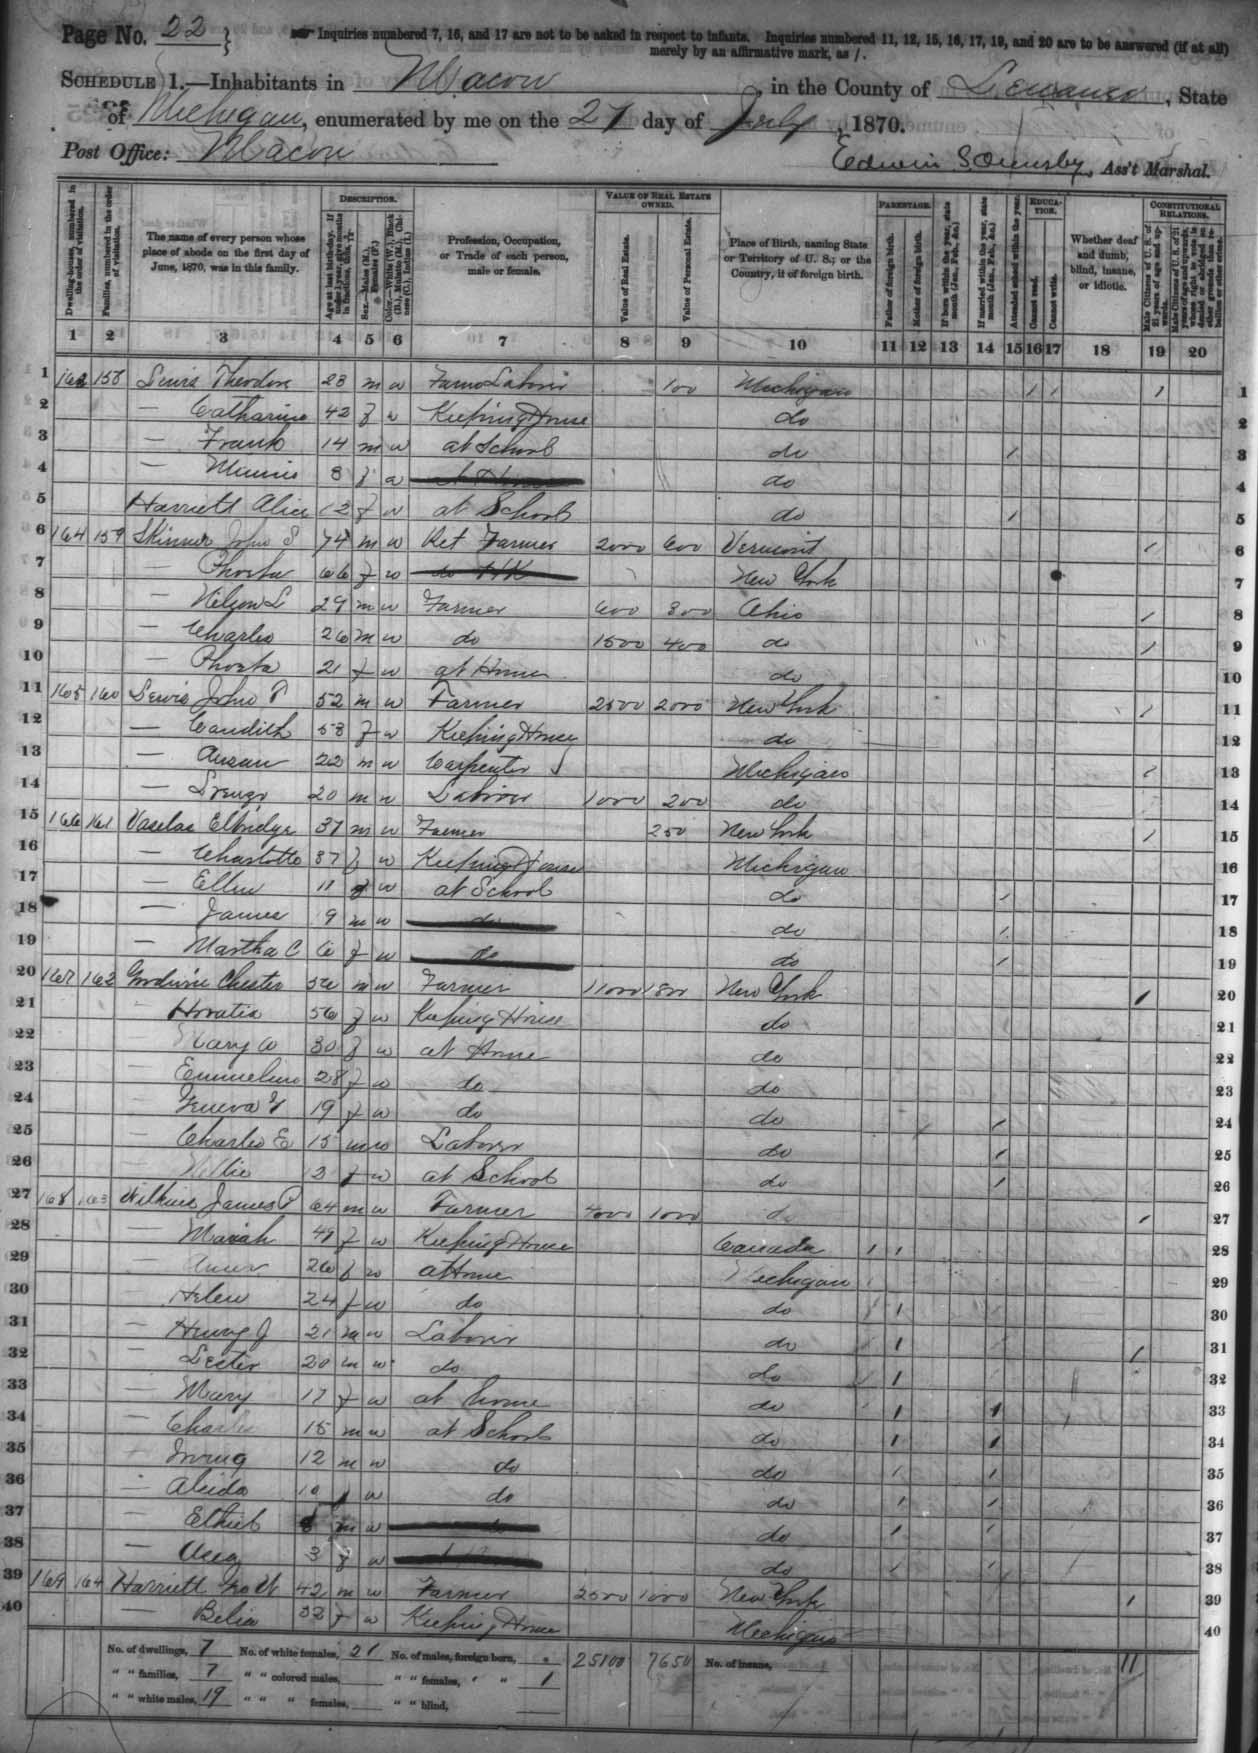 Page No. 22
Inquiries numbered 7, 16, and 17 are not to be asked in respect to infants. Inquiries numbered 11, 12, 15, 16, 17, 19, and 20 are to be answered (if at all)
merely by an affirmative mark, as /.
SCHEDULE 1.—Inhabitants in Macon, in the County of Lenawee, State
of Michigan, enumerated by me on the 27 day of July, 1870.
Post Office: Macon
Edwin S Ormsby, Ass't Marshal.
Dwelling-houses, numbered in the order of visitation.
Families, numbered in the order of visitation.
The name of every person whose place of abode on the first day of June, 1870, was in this family.
DESCRIPTION.
Age at last birth-day. If under 1 year, give months in fractions, thus, 3/12
Sex.—Males (M.), Females (F.)
Color.—White (W.), Black (B.), Mulatto (M.), Chinese (C.), Indian (I.)
Profession, Occupation, or Trade of each person, male or female.
VALUE OF REAL ESTATE OWNED.
Value of Real Estate.
Value of Personal Estate.
Place of Birth, naming State or Territory of U. S.; or the Country, if of foreign birth.
PARENTAGE.
Father of foreign birth.
Mother of foreign birth.
If born within the year, state month (Jan., Feb., &c.)
If married within the year, state month (Jan., Feb., &c.)
Attended school within the year.
EDUCATION.
Cannot read.
Cannot write.
Whether deaf and dumb, blind, insane, or idiotic.
CONSTITUTIONAL RELATIONS.
Male Citizens of U. S. of 21 years of age and upwards.
Male Citizens of U. S. of 21 years of age and upwards, whose right to vote is denied or abridged on other grounds than rebellion or other crime.
1 2 3 4 5 6 7 8 9 10 11 12 13 14 15 16 17 18 19 20
1 158 Lewis Theodore 28 m w Farm Laborer 100 Michigan / / / 1
2 — Catharine 42 f w Keeping House do 2
3 — Frank 14 m w at School do / 3
4 — Minnie 8 f w at Home do 4
5 Harriett Alice 12 f w at School do / 5
6 164 159 Skinner John S 74 m w Ret Farmer 2000 600 Vermont / 6
7 — Phoeba 66 f w do HK New York 7
8 — Nelson L 29 m w Farmer 600 800 Ohio / 8
9 — Charles 26 m w do 1500 400 do / 9
10 — Phoeba 21 f w at Home do 10
11 165 160 Lewis John T 52 m w Farmer 2500 2000 New York / 11
12 — 53 f w Keeping House do 12
13 — 22 m w Carpenter Michigan / 13
14 — Lorenzo 20 m w Laborer 1000 200 do 14
15 166 161 Elbridge 37 m w Farmer 250 New York / 15
16 — Charlotte 37 f w Keeping House Michigan 16
17 — Ellen 11 f w at School do / 17
18 — James 9 m w do do / 18
19 — Martha C 6 f w do do / 19
20 167 162 Goodwin Chester 56 m w Farmer 11000 1800 New York / 20
21 — Horatia 56 f w Keeping House do 21
22 — Mary 30 f w at Home do 22
23 — Emmeline 28 f w do do 23
24 — 19 f w do do / 24
25 — Charles E 15 m w Laborer do / 25
26 — f w at School do / 26
27 168 163 Wilkins James P 64 m w Farmer 4000 1000 do / 27
28 — Mariah 49 f w Keeping House Canada / / 28
29 — 26 f w at Home Michigan / 29
30 — Helen 24 f w do do / / 30
31 — Henry J 21 m w Laborer do / / / 31
32 — Lester 20 m w do do / / 32
33 — Mary 17 f w at home do / / / 33
34 — Charles 15 m w at School do / / 34
35 — Irving 12 m w do do / / 35
36 — 10 w do do / / 36
37 — m w do do / / 37
38 — 3 f w do / / 38
39 169 164 Harriett 42 m w Farmer 2500 1000 New York / 39
40 — Belia 32 f w Keeping House Michigan 40
No. of dwellings, 7 No. of white females, 21 No. of males, foreign born, 25100 7650 No. of insane, 11
" " families, 7 " " colored males, " " females, " " 1
" " white males, 19 " " " females, " " blind,